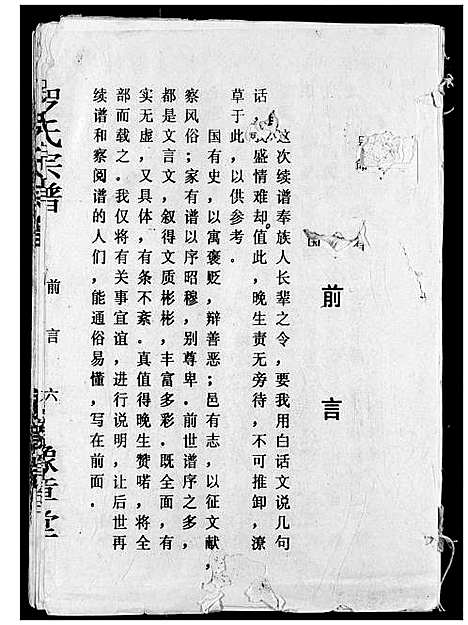 前言
这次续谱奉族人长辈之令，要我用白话文说几句
话，盛情难却。值此，晚生责无旁待，不可推卸，潦
草于此，以供参考。
国有史，以寓褒贬，辩善恶；邑有志，以征文献，
察风俗；家有谱以序昭穆，别尊卑。前世谱序之多，
都是文言文，叙得文质彬彬，丰富多彩。既全面，有
实无虚，又具体，有条不紊。真值得晚生赞喏，将全
部而载之。我仅将有关事宜谊，进行说明，让后世再
续谱和察阅谱的人们，能通俗易懂，写在前面。
罗氏宗谱
前言
六
豫章堂